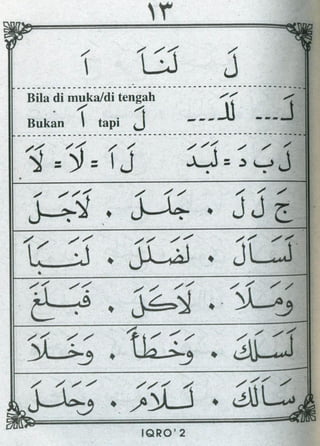 ١٣
لَ لَنَاَ اَ
Bila di muka/di tengah
Bukan اَ tapi لَ
لَـ ـلَـ
لَ بَ دَ = لَبَدَ لَ اَ = لَاَ = لَاَ
جَ لَ لَ • جَلَلَ • لَاَجَلَ
لَسَاَلَ • لَضَلَلَ • لَنَبَاَ
وَمَلَاَ • لَاَكَلَ • فَبَلَغَ
لَسَلَكَ • وَخَطَأَ • وَخَلَاَ
سَاَلَكَ • لَلَاَمَ • وَحَلَلَ
IQRO'2